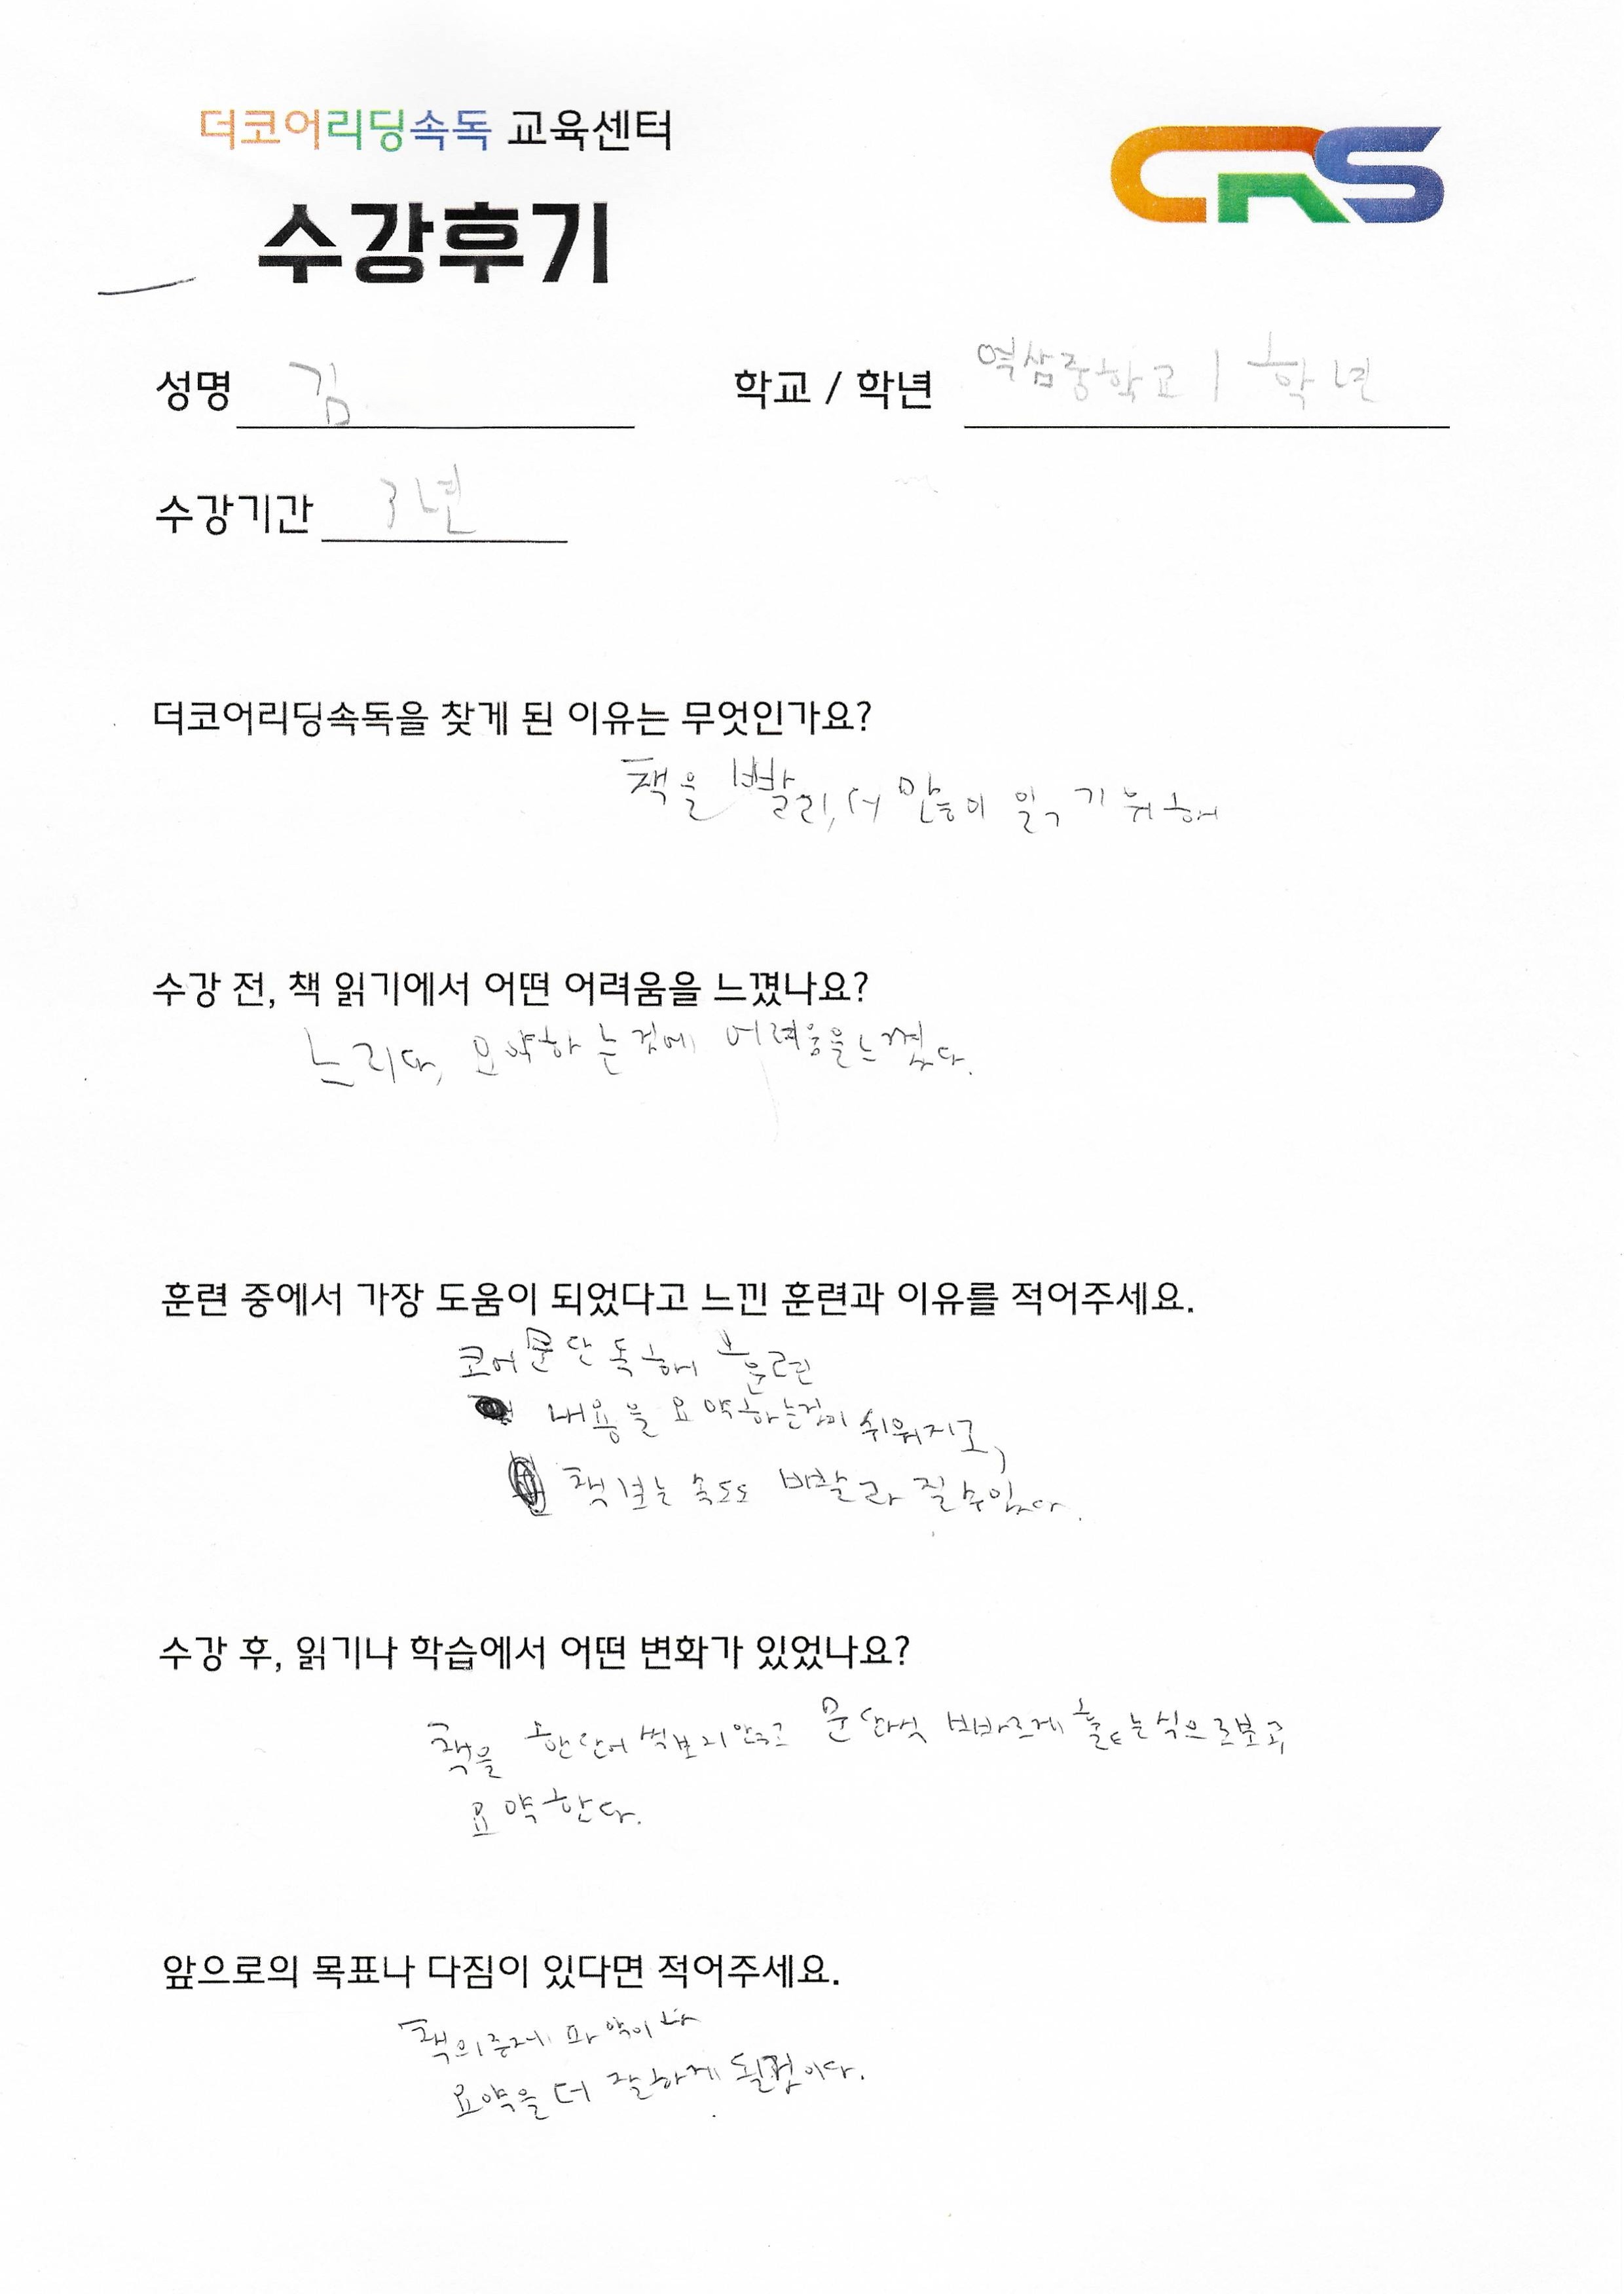 더코어리딩속독 교육센터
CRS
수강후기
성명 김 학교 / 학년 역삼중학교 1학년
수강기간 3년
더코어리딩속독을 찾게 된 이유는 무엇인가요?
책을 빨리, 더 많이 읽기 위해
수강 전, 책 읽기에서 어떤 어려움을 느꼈나요?
느리다, 요약하는것에 어려움을 느꼈다.
훈련 중에서 가장 도움이 되었다고 느낀 훈련과 이유를 적어주세요.
코어 문단 독해 훈련
내용을 요약하는것이 쉬워지고,
책 보는 속도도 빨라질 수 있다.
수강 후, 읽기나 학습에서 어떤 변화가 있었나요?
책을 한 단어씩 보지 않고 문단씩 빠르게 훑는 식으로 보고,
요약한다.
앞으로의 목표나 다짐이 있다면 적어주세요.
책의 주제 파악이나
요약을 더 잘하게 될 것이다.